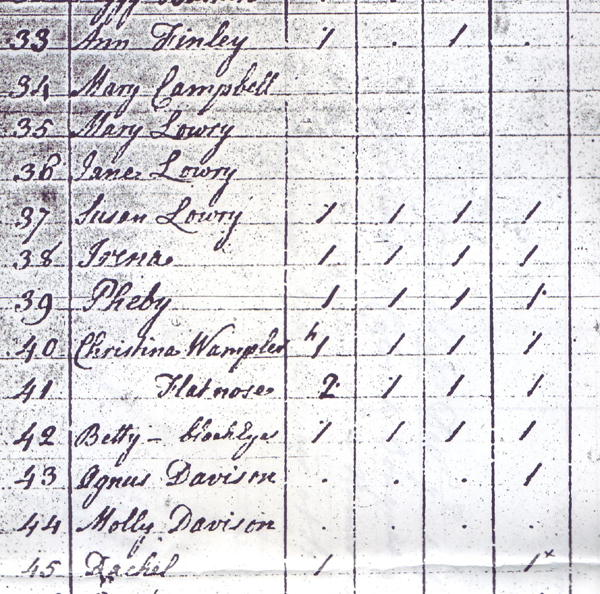 33 Ann Finley 1 . 1 .
34 Mary Campbell
35 Mary Lowry
36 Jane Lowry
37 Susan Lowry 1 1 1 1
38 Irena 1 1 1 1
39 Pheby 1 1 1 1
40 Christina Wampler h1 1 1 1
41 Flatnose 2 1 1 1
42 Betty - black Eyes 1 1 1 1
43 Agnus Davison . . . 1
44 Molly Davison . . . .
45 Rachel 1 1x